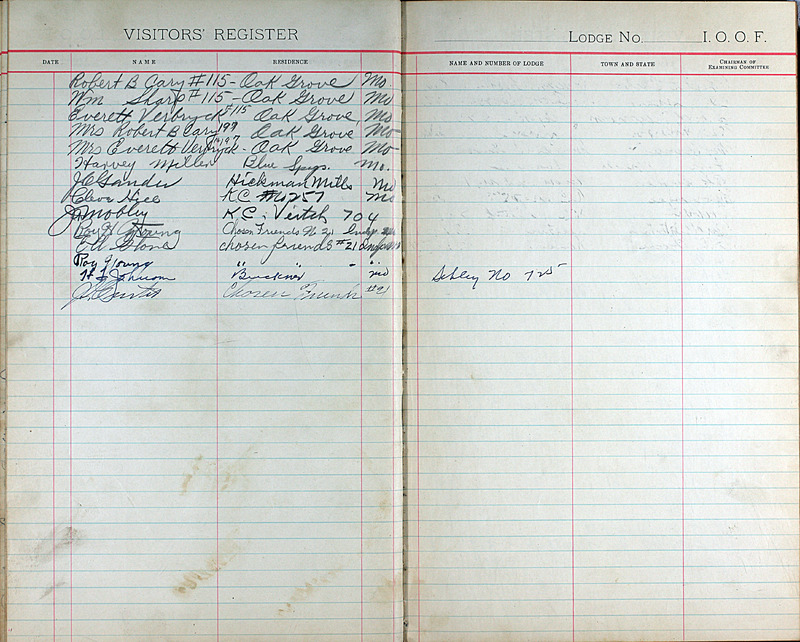 VISITORS' REGISTER
LODGE No. I. O. O. F.
DATE NAME RESIDENCE
NAME AND NUMBER OF LODGE TOWN AND STATE CHAIRMAN OF EXAMINING COMMITTEE
Robert B Cary #115 - Oak Grove Mo
Wm Sharp #115 - Oak Grove Mo
Everett Verbryck #115 Oak Grove, Mo
Mrs Robert B Cary 199 Oak Grove Mo
Mrs Everett Verbryck - Oak Grove Mo
Harvey Miller Blue Spgs. Mo.
Hickman Mills Mo
K C 257 Mo
J Mobley K.C. 704
Roy Young Chosen Friends No 21
Stone chosen friends #21
Roy Young " "
Johnson Buckner Mo Sibley No 725
Chosen Friends #21